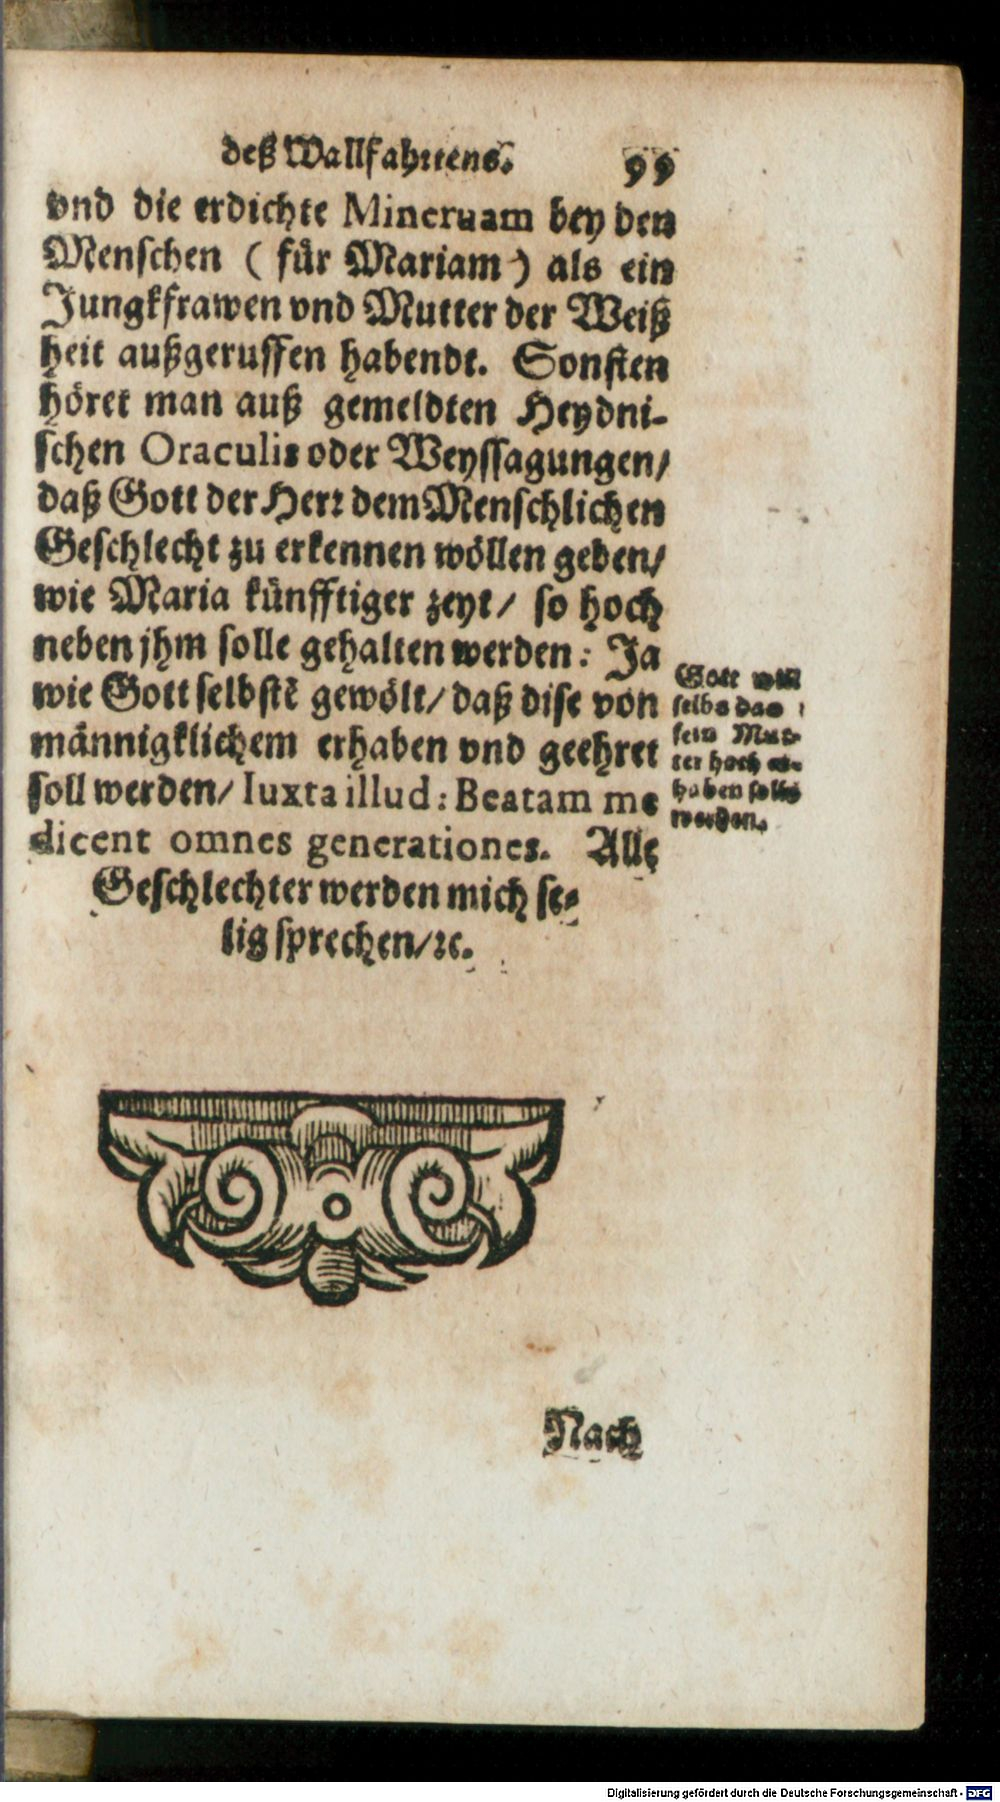 deß Wallfahrtens. 99
vnd die erdichte Mineruam bey den
Menschen ( für Mariam ) als ein
Jungkfrawen vnd Mutter der Weiß
heit außgeruffen habendt. Sonsten
höret man auß gemeldten Heydni-
schen Oraculis oder Weyssagungen/
daß Gott der Herr dem Menschlichen
Geschlecht zu erkennen wöllen geben/
wie Maria künfftiger zeyt/ so hoch
neben jhm solle gehalten werden: Ja
wie Gott selbstē gewölt/ daß dise von
männigklichem erhaben vnd geehret
soll werden/ Iuxta illud: Beatam me
dicent omnes generationes. Alle
Geschlechter werden mich se-
lig sprechen/ꝛc.
Gott will
selbs das
sein Mut-
ter hoch er-
haben solle
werden.
Nach
Digitalisierung gefördert durch die Deutsche Forschungsgemeinschaft - DFG